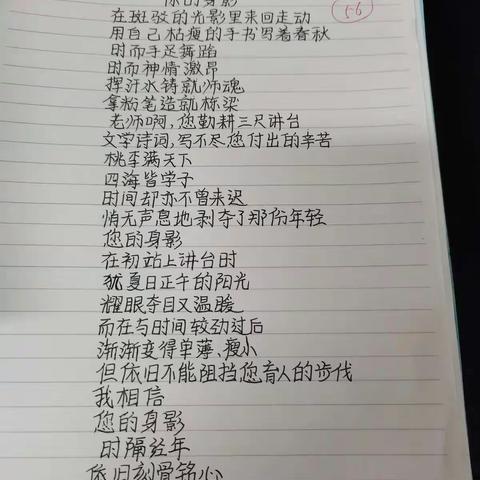 你的身影
56
在斑驳的光影里来回走动
用自己枯瘦的手书写着春秋
时而手足舞蹈
时而神情激昂
挥汗水铸就师魂
拿粉笔造就栋梁
老师啊,您勤耕三尺讲台
文学诗词,写不尽您付出的辛苦
桃李满天下
四海皆学子
时间却亦不曾来迟
悄无声息地剥夺了那份年轻
您的身影
在初站上讲台时
犹夏日正午的阳光
耀眼夺目又温暖
而在与时间较劲过后
渐渐变得单薄、瘦小
但依旧不能阻挡您育人的步伐
我相信
您的身影
时隔经年
依旧刻骨铭心